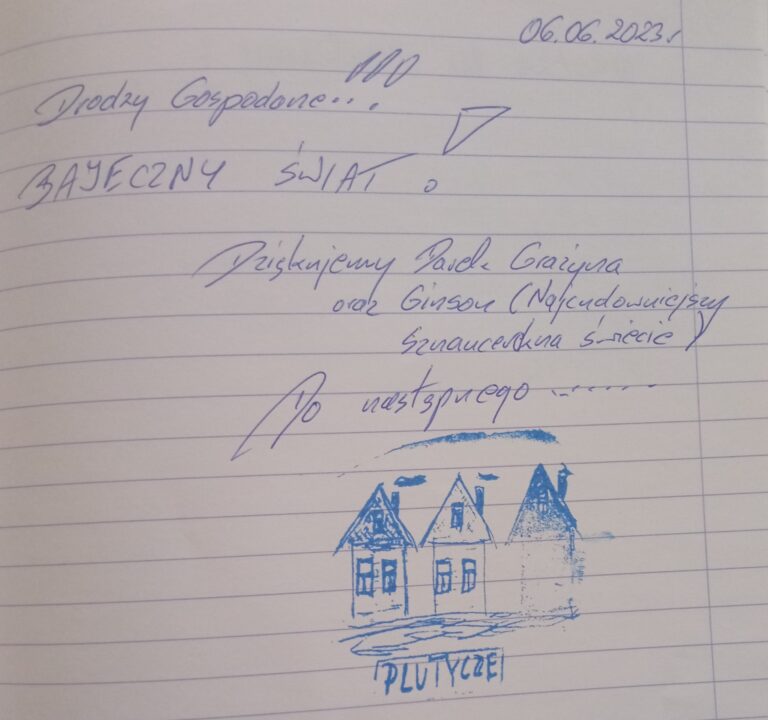 06.06.2023r
Drodzy Gospodarze...!!!
BAJECZNY ŚWIAT!
Dziękujemy Darek Grażyna
oraz Ginson (Najcudowniejszy
Sznaucerek na świecie)
Do następnego ..........
PLUTYCZE